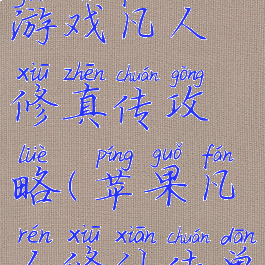 游戏凡人
xiū zhēn chuán gōng
修真传攻
lüè píng guǒ fán
略(苹果凡
rén xiū xiān chuán dān